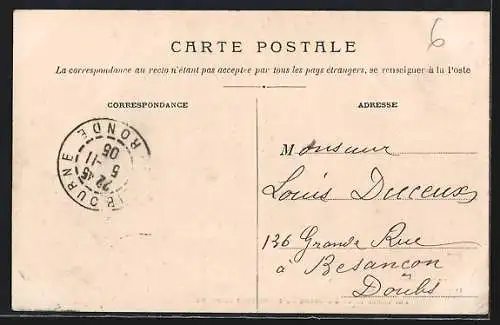 6
CARTE POSTALE
La correspondance au recto n'étant pas acceptée par tous les pays étrangers, se renseigner à la Poste
CORRESPONDANCE
ADRESSE
Monsieur
Louis Duceux
136 Grande Rue
à Besançon
Doubs
22 45
5 -11
05